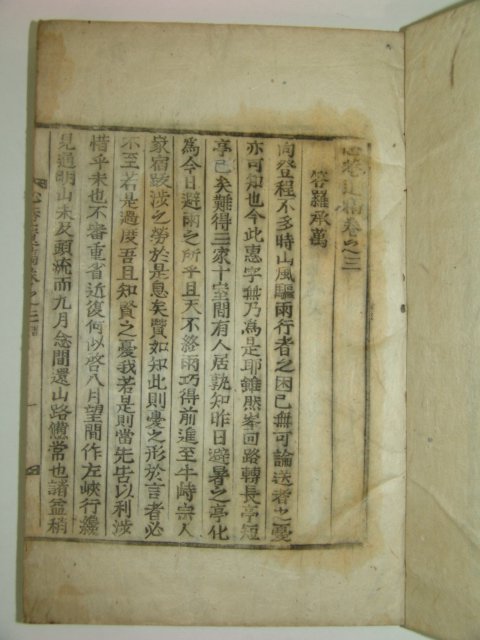 心菴遺稿卷之三
答羅承萬
向登程不多時山風驅雨行者之困已無可論送者之憂
亦可知也今此惠字無乃爲是耶雖然峯回路轉長亭短
亭已矣難得三家十室間有人居孰知昨日避暑之亭化
爲今日避雨之所乎且天不終雨巧得前進至牛峙宗人
家宿跋涉之勞於是息矣賢如知此則憂之形於言者必
不至若是過度吾且知賢之憂我若是則當先告以利涉
惜乎未也不審重省近復何似啓八月望間作左峽行纔
見通明山未及頭流而九月念間還山路憊常也諸益稍
心菴遺稿卷之三